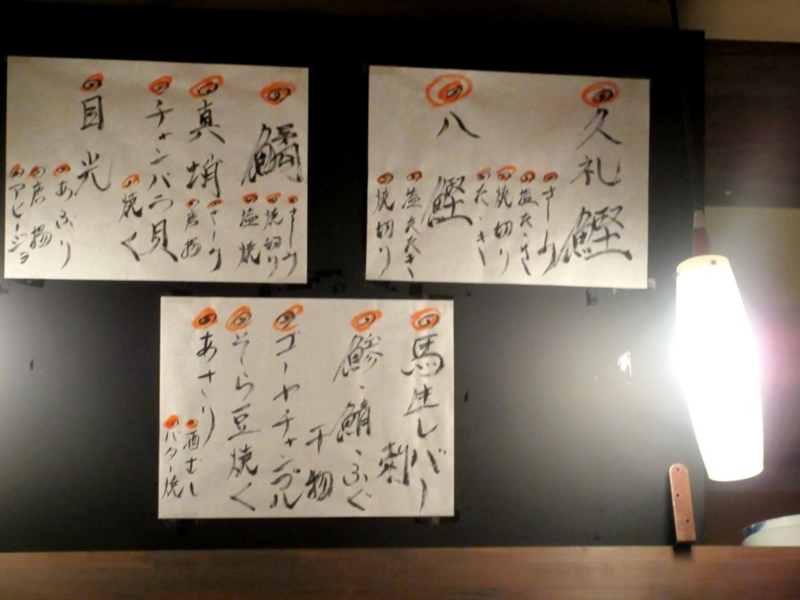 久礼鰹
さしみ
塩たたき
焼切り
たゝき
八鰹
塩たたき
焼切り
さしみ
焼切り
塩焼
真蛸
さしみ
唐揚
チャンバラ貝
焼く
目光
あぶり
唐揚
アヒージョ
馬生レバー刺
鯵、鯖、ふぐ
干物
ゴーヤチャンプル
そら豆焼く
あさり
酒むし
バター焼